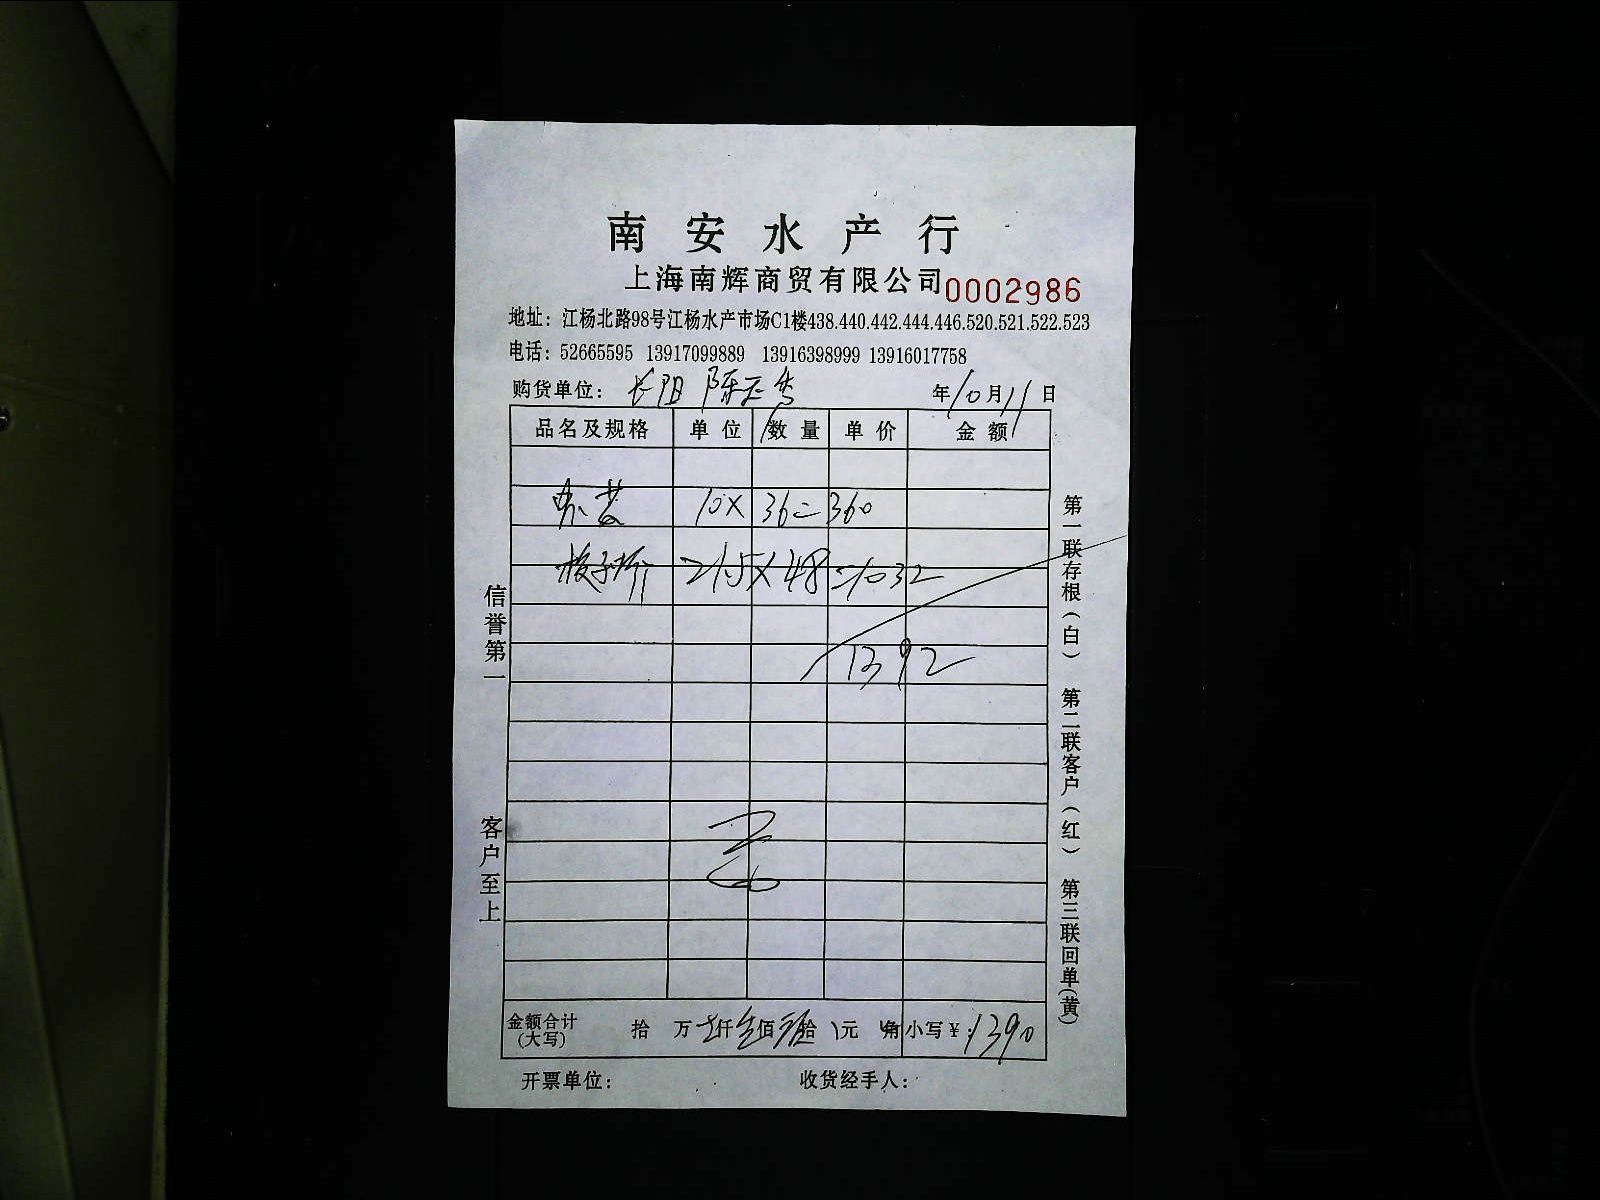 南安水产行
上海南辉商贸有限公司 0002986
地址：江杨北路98号江杨水产市场C1楼438.440.442.444.446.520.521.522.523
电话：52665595 13917099889 13916398999 13916017758
购货单位：长阳 陈 年10月11日
品名及规格 单位 数量 单价 金额
10X 36=360
板子 21.5X48=1032
1392
信誉第一
客户至上
第一联存根（白） 第二联客户（红） 第三联回单（黄）
金额合计（大写） 拾 万 仟 佰 拾 元 角 小写￥：1390
开票单位： 收货经手人：